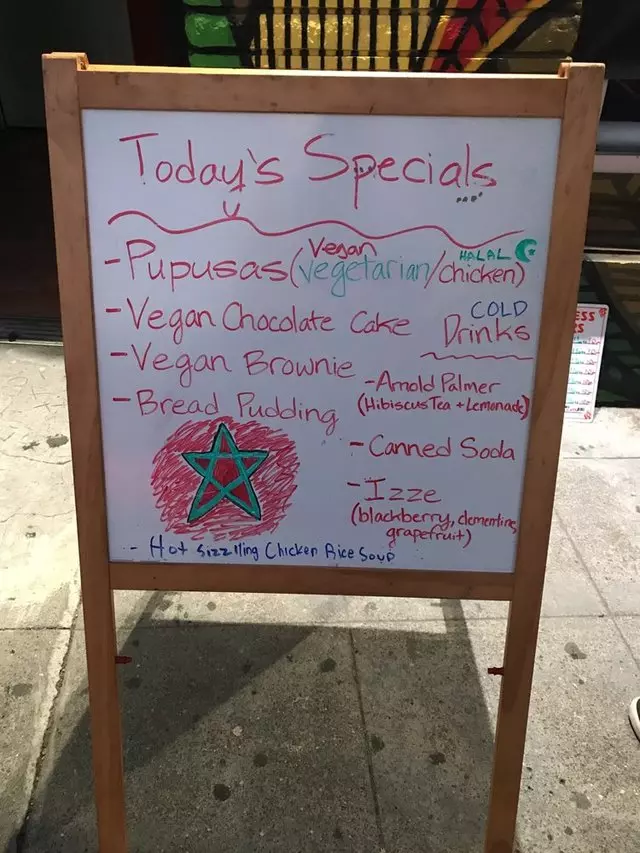 Today's Specials
- Pupusas (Vegan vegetarian/chicken) HALAL
- Vegan Chocolate Cake
- Vegan Brownie
- Bread Pudding
COLD
Drinks
- Arnold Palmer
(Hibiscus Tea + Lemonade)
- Canned Soda
- Izze
(blackberry, clementine,
grapefruit)
- Hot Sizzlling Chicken Rice Soup
ESS